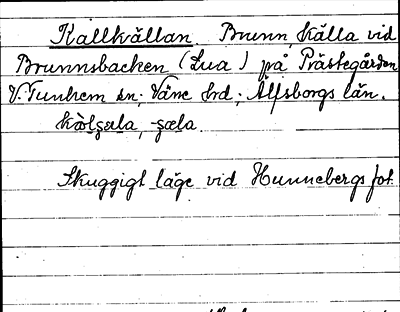 Kallkvällan. Brunn, källa vid
Brunnsbacken (Lua) på Prästegården
V. Tunhem sn; Väne hrd; Älfsborgs län.
Skuggigt läge vid Hunnebergs fot.